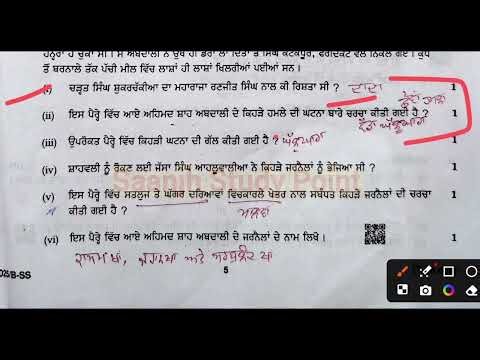 ਹਨ੍ਹੇਰਾ ਹੋ ਚੁੱਕਾ ਸੀ। ਸੋ ਅਬਦਾਲੀ ਨੇ ਉਥੇ ਹੀ ਡੇਰਾ ਲਾ ਦਿੱਤਾ ਤੇ ਸਿੰਘ ਕੋਟਕਪੂਰੇ, ਫਰੀਦਕੋਟ ਵੱਲ ਨਿਕਲ ਗਏ। ਕੁੱਪ
ਤੋਂ ਬਰਨਾਲੇ ਤੱਕ ਪੱਚੀ ਮੀਲ ਵਿੱਚ ਲਾਸ਼ਾਂ ਹੀ ਲਾਸ਼ਾਂ ਖਿਲਰੀਆਂ ਪਈਆਂ ਸਨ।
(i) ਚੜ੍ਹਤ ਸਿੰਘ ਸ਼ੁਕਰਚੱਕੀਆ ਦਾ ਮਹਾਰਾਜਾ ਰਣਜੀਤ ਸਿੰਘ ਨਾਲ ਕੀ ਰਿਸ਼ਤਾ ਸੀ ? ਦਾਦਾ 1
(ii) ਇਸ ਪੈਰ੍ਹੇ ਵਿੱਚ ਆਏ ਅਹਿਮਦ ਸ਼ਾਹ ਅਬਦਾਲੀ ਦੇ ਕਿਹੜੇ ਹਮਲੇ ਦੀ ਘਟਨਾ ਬਾਰੇ ਚਰਚਾ ਕੀਤੀ ਗਈ ਹੈ ? 1
ਵੱਡਾ ਘੱਲੂਘਾਰਾ
(iii) ਉਪਰੋਕਤ ਪੈਰ੍ਹੇ ਵਿੱਚ ਕਿਹੜੀ ਘਟਨਾ ਦੀ ਗੱਲ ਕੀਤੀ ਗਈ ਹੈ ? ਘੱਲੂਘਾਰਾ 1
(iv) ਸ਼ਾਹਵਲੀ ਨੂੰ ਰੋਕਣ ਲਈ ਜੱਸਾ ਸਿੰਘ ਆਹਲੂਵਾਲੀਆ ਨੇ ਕਿਹੜੇ ਜਰਨੈਲਾਂ ਨੂੰ ਭੇਜਿਆ ਸੀ ? 1
(v) ਇਸ ਪੈਰ੍ਹੇ ਵਿੱਚ ਸਤਲੁਜ ਤੇ ਘੱਗਰ ਦਰਿਆਵਾਂ ਵਿਚਕਾਰਲੇ ਖੇਤਰ ਨਾਲ ਸਬੰਧਤ ਕਿਹੜੇ ਜਰਨੈਲ ਦੀ ਚਰਚਾ
ਕੀਤੀ ਗਈ ਹੈ ? ਮਾਲਵਾ 1
(vi) ਇਸ ਪੈਰ੍ਹੇ ਵਿੱਚ ਆਏ ਅਹਿਮਦ ਸ਼ਾਹ ਅਬਦਾਲੀ ਦੇ ਜਰਨੈਲਾਂ ਦੇ ਨਾਮ ਲਿਖੋ। 1
ਅਤੇ
5
B-SS